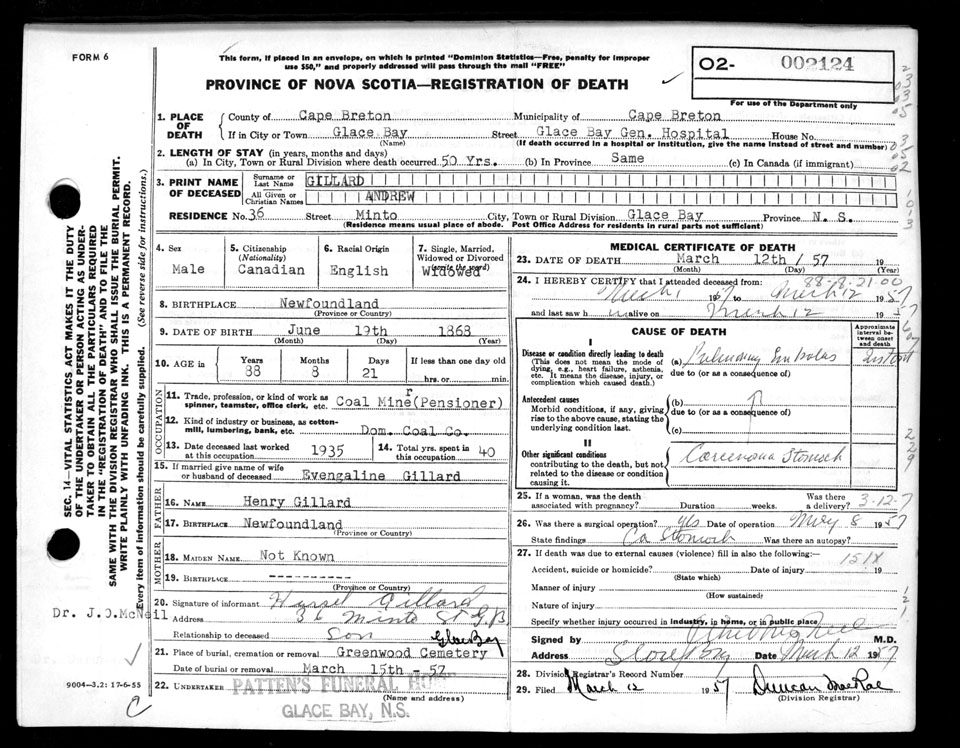 FORM 6
This form, if placed in an envelope, on which is printed "Dominion Statistics—Free, penalty for improper
use $50," and properly addressed will pass through the mail "FREE"
PROVINCE OF NOVA SCOTIA—REGISTRATION OF DEATH
O2- 002124
For use of the Department only
SEC. 14—VITAL STATISTICS ACT MAKES IT THE DUTY
OF THE UNDERTAKER OR PERSON ACTING AS UNDER-
TAKER TO OBTAIN ALL THE PARTICULARS REQUIRED
IN THE "REGISTRATION OF DEATH" AND TO FILE THE
SAME WITH THE DIVISION REGISTRAR WHO SHALL ISSUE THE BURIAL PERMIT.
WRITE PLAINLY WITH UNFADING INK. THIS IS A PERMANENT RECORD.
Every item of information should be carefully supplied. (See reverse side for instructions.)
1. PLACE OF DEATH
County of Cape Breton Municipality of Cape Breton
If in City or Town Glace Bay Street Glace Bay Gen. Hospital House No.
(Name) (If death occurred in a hospital or institution, give the name instead of street and number)
2. LENGTH OF STAY (in years, months and days)
(a) In City, Town or Rural Division where death occurred 50 Yrs. (b) In Province Same (c) In Canada (if immigrant)
3. PRINT NAME OF DECEASED
Surname or Last Name GILLARD
All Given or Christian Names ANDREW
RESIDENCE No. 36 Street Minto City, Town or Rural Division Glace Bay Province N. S.
(Residence means usual place of abode. Post Office Address for residents in rural parts not sufficient)
4. Sex
Male
5. Citizenship
(Nationality)
Canadian
6. Racial Origin
English
7. Single, Married,
Widowed or Divorced
(write the word)
Widowed
8. BIRTHPLACE Newfoundland
(Province or Country)
9. DATE OF BIRTH June 19th 1868
(Month) (Day) (Year)
10. AGE IN Years Months Days If less than one day old
88 8 21 hrs. or min.
OCCUPATION
11. Trade, profession, or kind of work as
spinner, teamster, office clerk, etc. Coal Miner (Pensioner)
12. Kind of industry or business, as cotton-
mill, lumbering, bank, etc. Dom. Coal Co.
13. Date deceased last worked
at this occupation 1935
14. Total yrs. spent in
this occupation 40
15. If married give name of wife
or husband of deceased Evengaline Gillard
FATHER
16. NAME Henry Gillard
17. BIRTHPLACE Newfoundland
(Province or Country)
MOTHER
18. MAIDEN NAME Not Known
19. BIRTHPLACE -----------
(Province or Country)
20. Signature of informant Gillard
36 Minto St G.B.
Relationship to deceased Son Glace Bay
21. Place of burial, cremation or removal Greenwood Cemetery
Date of burial or removal March 15th - 57
22. UNDERTAKER PATTEN'S FUNERAL HOME
(Name and address)
GLACE BAY, N.S.
Dr. J.O.McNeil
9004—3.2: 17-6-55
MEDICAL CERTIFICATE OF DEATH
23. DATE OF DEATH March 12th / 57 19
(Month) (Day) (Year)
88-8-21.00
24. I HEREBY CERTIFY that I attended deceased from:
March 1 1957 to March 12 1957
and last saw h im alive on March 12 1957
CAUSE OF DEATH
Approximate
interval be-
tween onset
and death
I
Disease or condition directly leading to death
(This does not mean the mode of
dying, e.g., heart failure, asthenia,
etc. It means the disease, injury, or
complication which caused death.)
(a) Pulmonary Embolus
due to (or as a consequence of)
Antecedent causes
Morbid conditions, if any, giving
rise to the above cause, stating the
underlying condition last.
(b)
due to (or as a consequence of)
(c)
II
Other significant conditions
contributing to the death, but not
related to the disease or condition
causing it.
Carcinoma Stomach
25. If a woman, was the death
associated with pregnancy? Duration weeks. Was there
a delivery?
3-12-7
26. Was there a surgical operation? yes Date of operation 8 1957
State findings Ca Stomach Was there an autopsy?
27. If death was due to external causes (violence) fill in also the following:—
151X
Accident, suicide or homicide? Date of injury 19
(State which)
Manner of injury
(How sustained)
Nature of injury
Specify whether injury occurred in industry, in home, or in public place
Signed by M.D.
Address Glace Bay Date March 12 1957
28. Division Registrar's Record Number
29. Filed March 12 1957 Duncan MacRae
(Division Registrar)